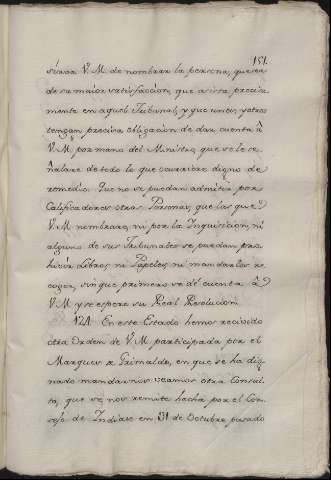 151.
sirva V. M. de nombrar la persona, que sea
de su maior satisfaccion, que asista precisa
mente en aquel Tribunal, y que unos, y otros
tengan precisa obligacion de dar cuenta â
V. M. por mano del Ministro, que se le se
ñalare de todo lo que ocurriere digno de
remedio. Que no se puedan admitir por
Calificadores otras Personas, que las que
V. M. nombrare, ni por la Inquisicion, ni
alguno de sus Tribunales se puedan pro
hivir Libros, ni Papeles, ni mandarlos re
coger, sin que primero se dé cuenta â
V. M. y se espere su Real Resolucion.
124. En este Estado hemos recivido
otra Orden de V. M. participada por el
Marques de Grimaldo, en que se ha dig
nado mandarnos veamos otra Consul
ta, que se nos remite hecha por el Con
sejo de Indias en 31 de Octubre pasado